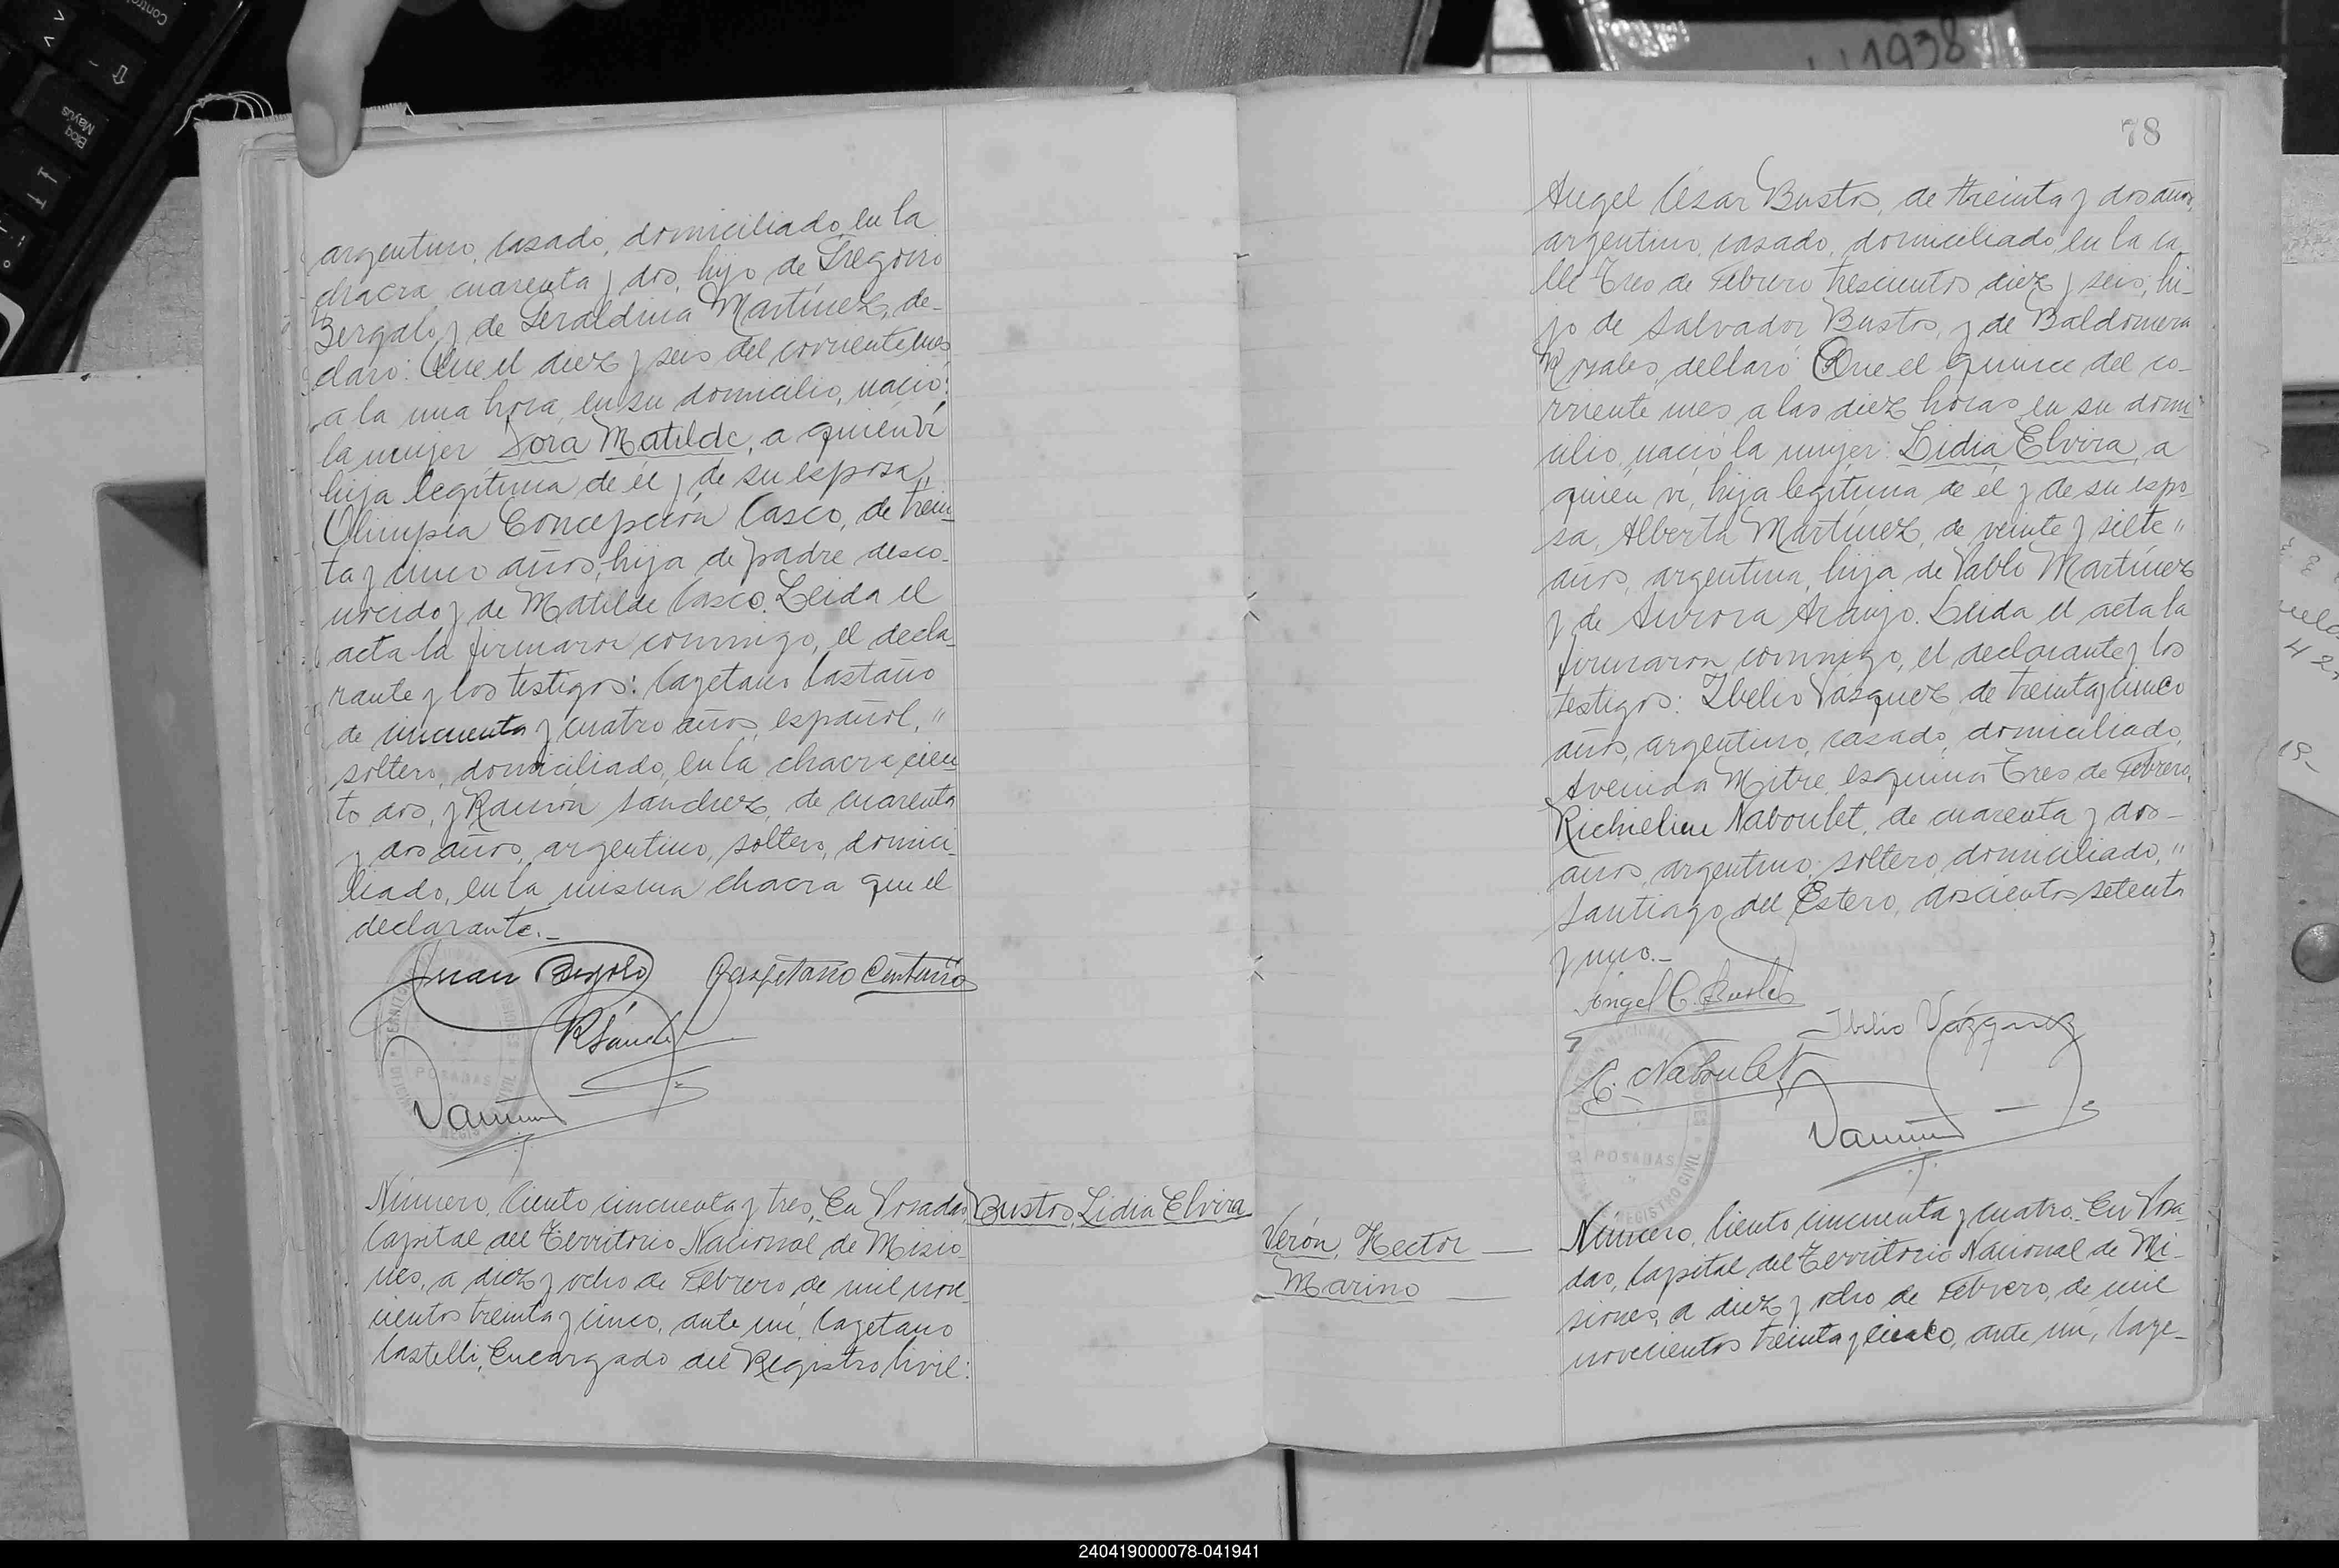 argentino, casado, domiciliado, en la
chacra cuarenta y dos, hijo de Gregorio
Bergalo y de Geraldina Martínez, de-
claró: Que el diez y seis del corriente mes
a la una hora, en su domicilio, nació:
la mujer Dora Matilde, a quien ví
hija legítima de él y de su esposa,,
Olimpia Concepción Casco, de trein-
ta y cinco años, hija de padre desco-
nocido y de Matilde Casco. Leida el
acta la firmaron conmigo, el decla-
rante y los testigos: Cayetano Castaño
de cincuenta y cuatro años, español, "
soltero, domiciliado, en la chacra cien
to dos, y Ramón Sánchez, de cuarenta
y dos años, argentino, soltero, domici-
liado, en la misma chacra que el
declarante.-
Juan
RSánch
POSADAS
REGISTRO CIVIL
Número, Ciento cincuenta y tres, En Posadas
Capital del Territorio Nacional de Misio-
nes, a diez y ocho de Febrero de mil nove-
cientos treinta y cinco, ante mí, Cayetano
Castelli, Encargado del Registro Civil:
Bustos, Lidia Elvira
78
Angel César Bustos, de treinta y dos años,
argentino, casado, domiciliado, en la ca-
lle Tres de Febrero trescientos diez y seis, hi-
jo de Salvador Bustos, y de Baldomera
Rosales, declaró: Que el quince del co-
rriente mes, a las diez horas, en su domi-
cilio, nació la mujer: Lidia Elvira, a
quién ví, hija legítima de él y de su espo-
sa, Alberta Martínez, de veinte y siete "
años, argentina, hija de Pablo Martínez
y de Aurora Araujo. Leida el acta la
firmaron conmigo, el declarante y los
testigos: Ibelio Vásquez, de treinta y cinco
años, argentino, casado, domiciliado,
Avenida Mitre, esquina Tres de Febrero,
Richelieu Naboulet, de cuarenta y dos-
años, argentino, soltero, domiciliado, "
Santiago del Estero, doscientos setenta
y uno.-
Angel C. Bustos
Ibelio Vázquez
Naboulet
POSADAS
REGISTRO CIVIL
Verón, Hector
Marino
Número, Ciento cincuenta y cuatro. En Posa-
das, Capital del Territorio Nacional de Mi-
siones, a diez y ocho de Febrero, de mil
novecientos treinta y cinco, ante mí, Caye-
1938
240419000078-041941